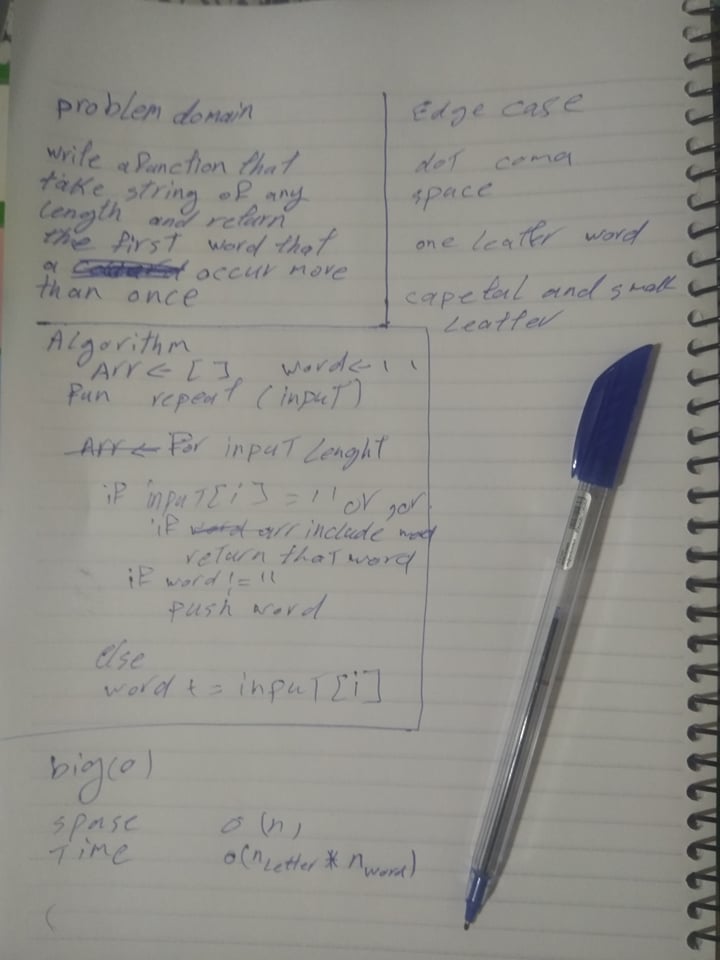 problem domain
write a function that
take string of any
length and return
the first word that
a occur more
than once
Edge case
dot coma
space
one leatter word
capetal and small
Leatter
Algorithm
Arr ← [ ], word ← ' '
Fun repeat (input)
Arr ← For input Lenght
if input[i] = '' or , or .
if word arr include word
return that word
if word != ''
push word
else
word += input[i]
big(o)
spase o(n)
Time o(n Letter * n word)
(